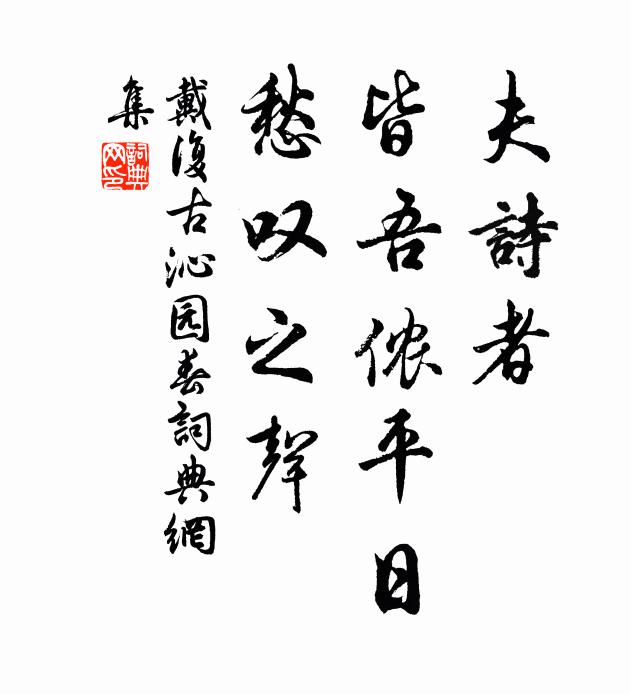 夫詩者
皆吾侬平日
愁叹之聲
戴復古沁园春詞典網
集
詞典
网印